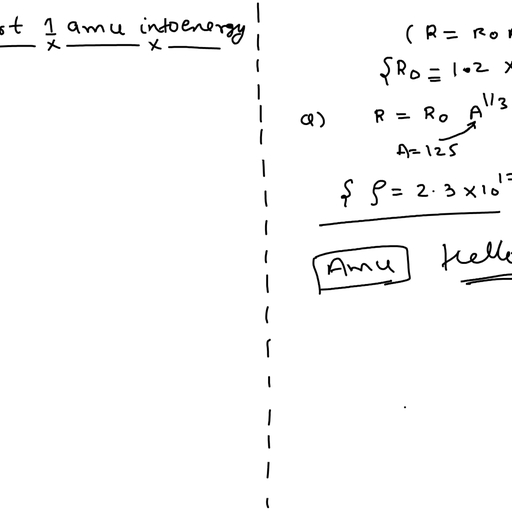 1 amu into energy
( R = R₀
{R₀ = 1.2 ×
Q) R = R₀ A^1/3
A=125
{ ρ = 2.3 ×10
Amu Hello